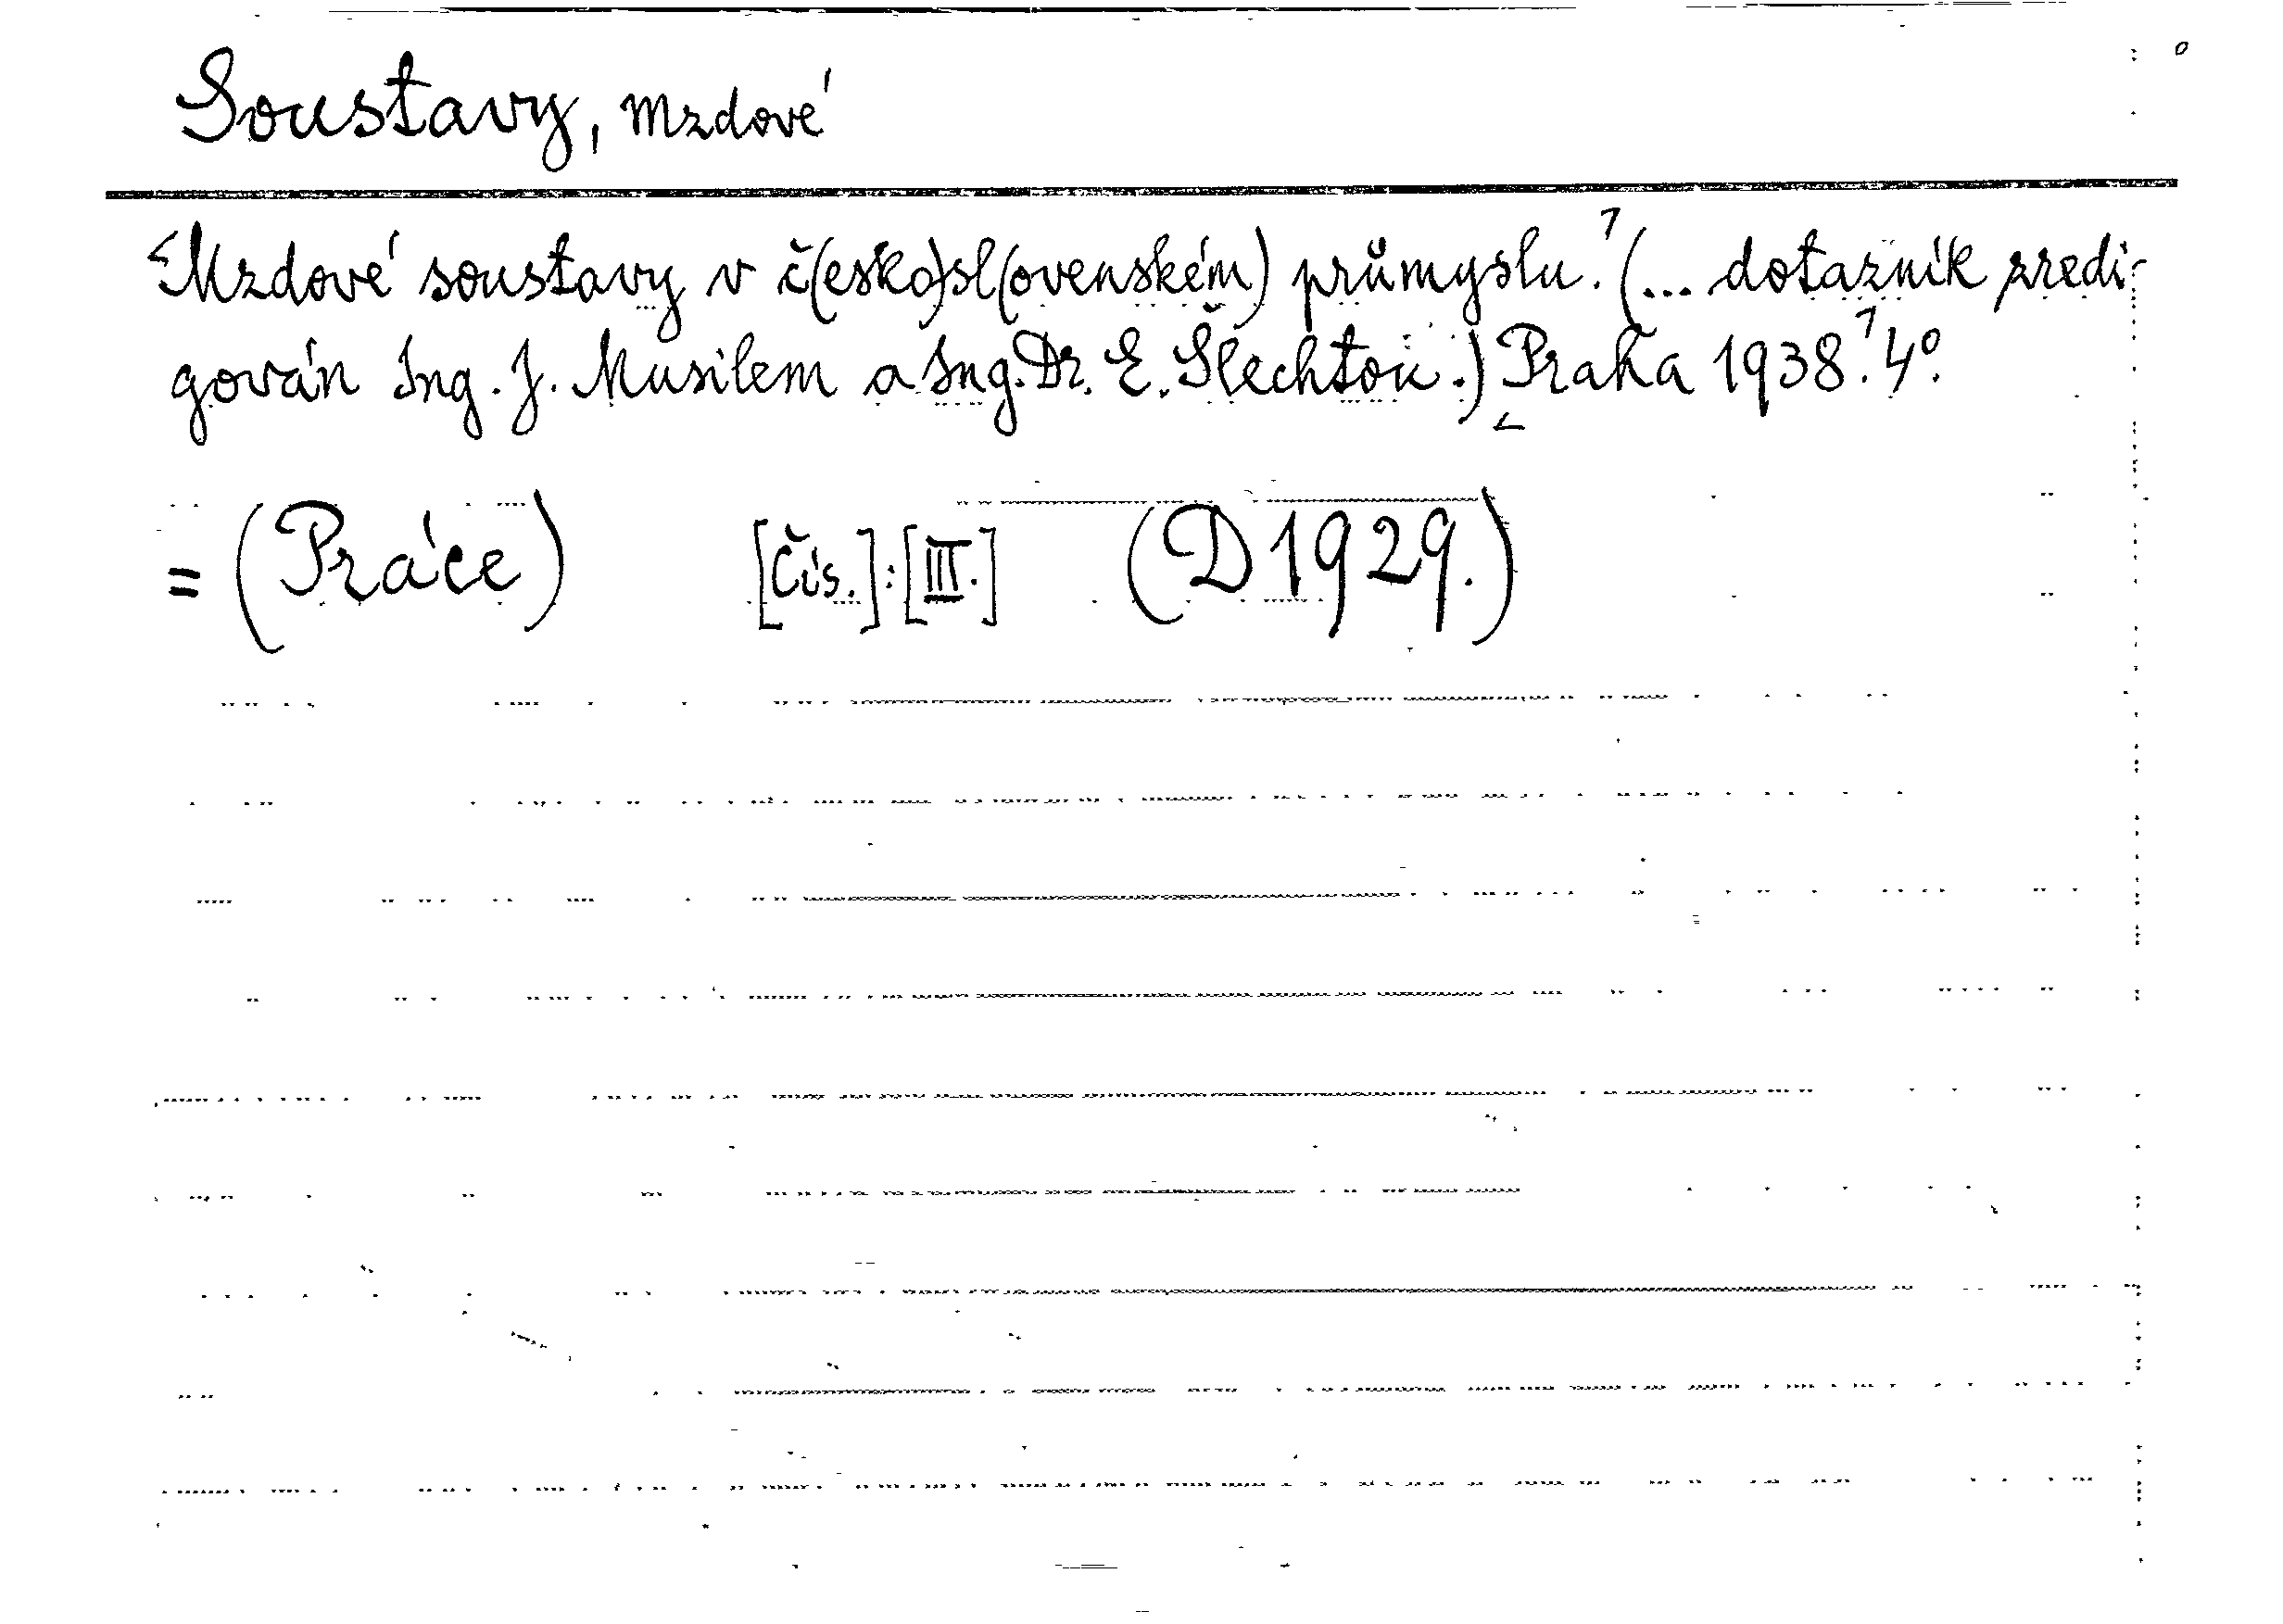 Soustavy, mzdové
Mzdové soustavy v č(esko)sl(ovenském) průmyslu. (... dotazník zredi-
gován Ing. J. Musilem a Ing. Dr. E. Šlechtou.) Praha 1938. 4°.
= (Práce) [Čís.]:[III.] (D 1929.)